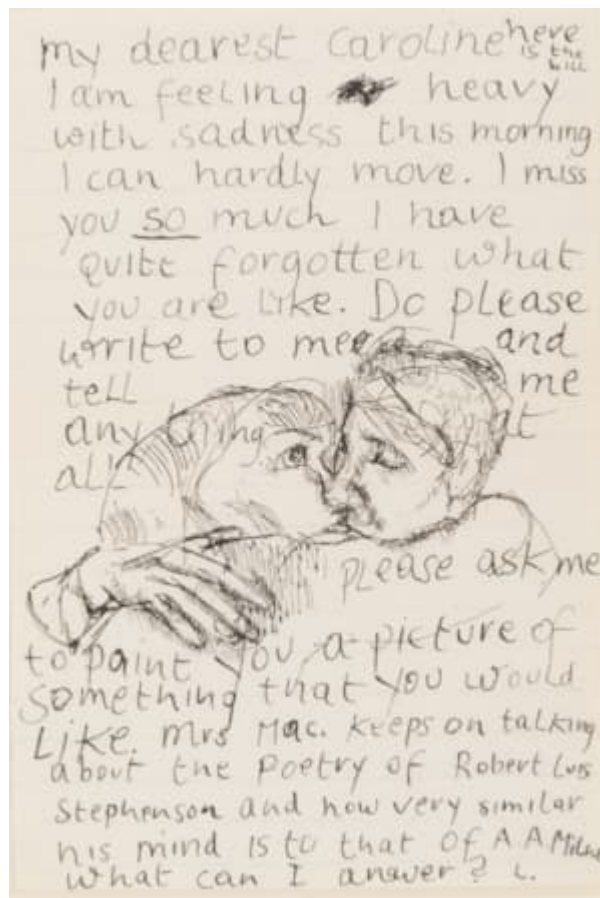 my dearest Caroline here is the bill
I am feeling heavy
with sadness this morning
I can hardly move. I miss
you so much I have
quite forgotten what
you are like. Do please
write to me and
tell me
any thing at
all
please ask me
to paint you a picture of
something that you would
Like. Mrs Mac. keeps on talking
about the Poetry of Robert Luis
Stephenson and how very similar
his mind is to that of A A Milne
what can I answer? L.